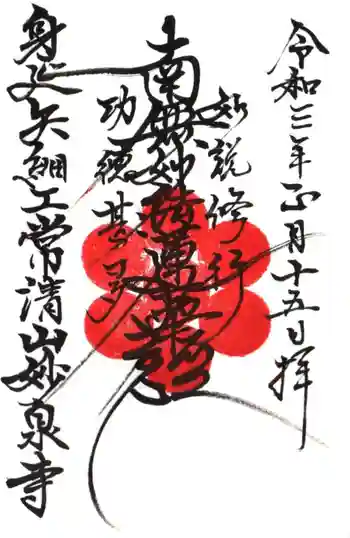 令和三年正月十五日拝
如説修行
南無妙法蓮華経
功徳甚多
身延久遠 常清山妙泉寺